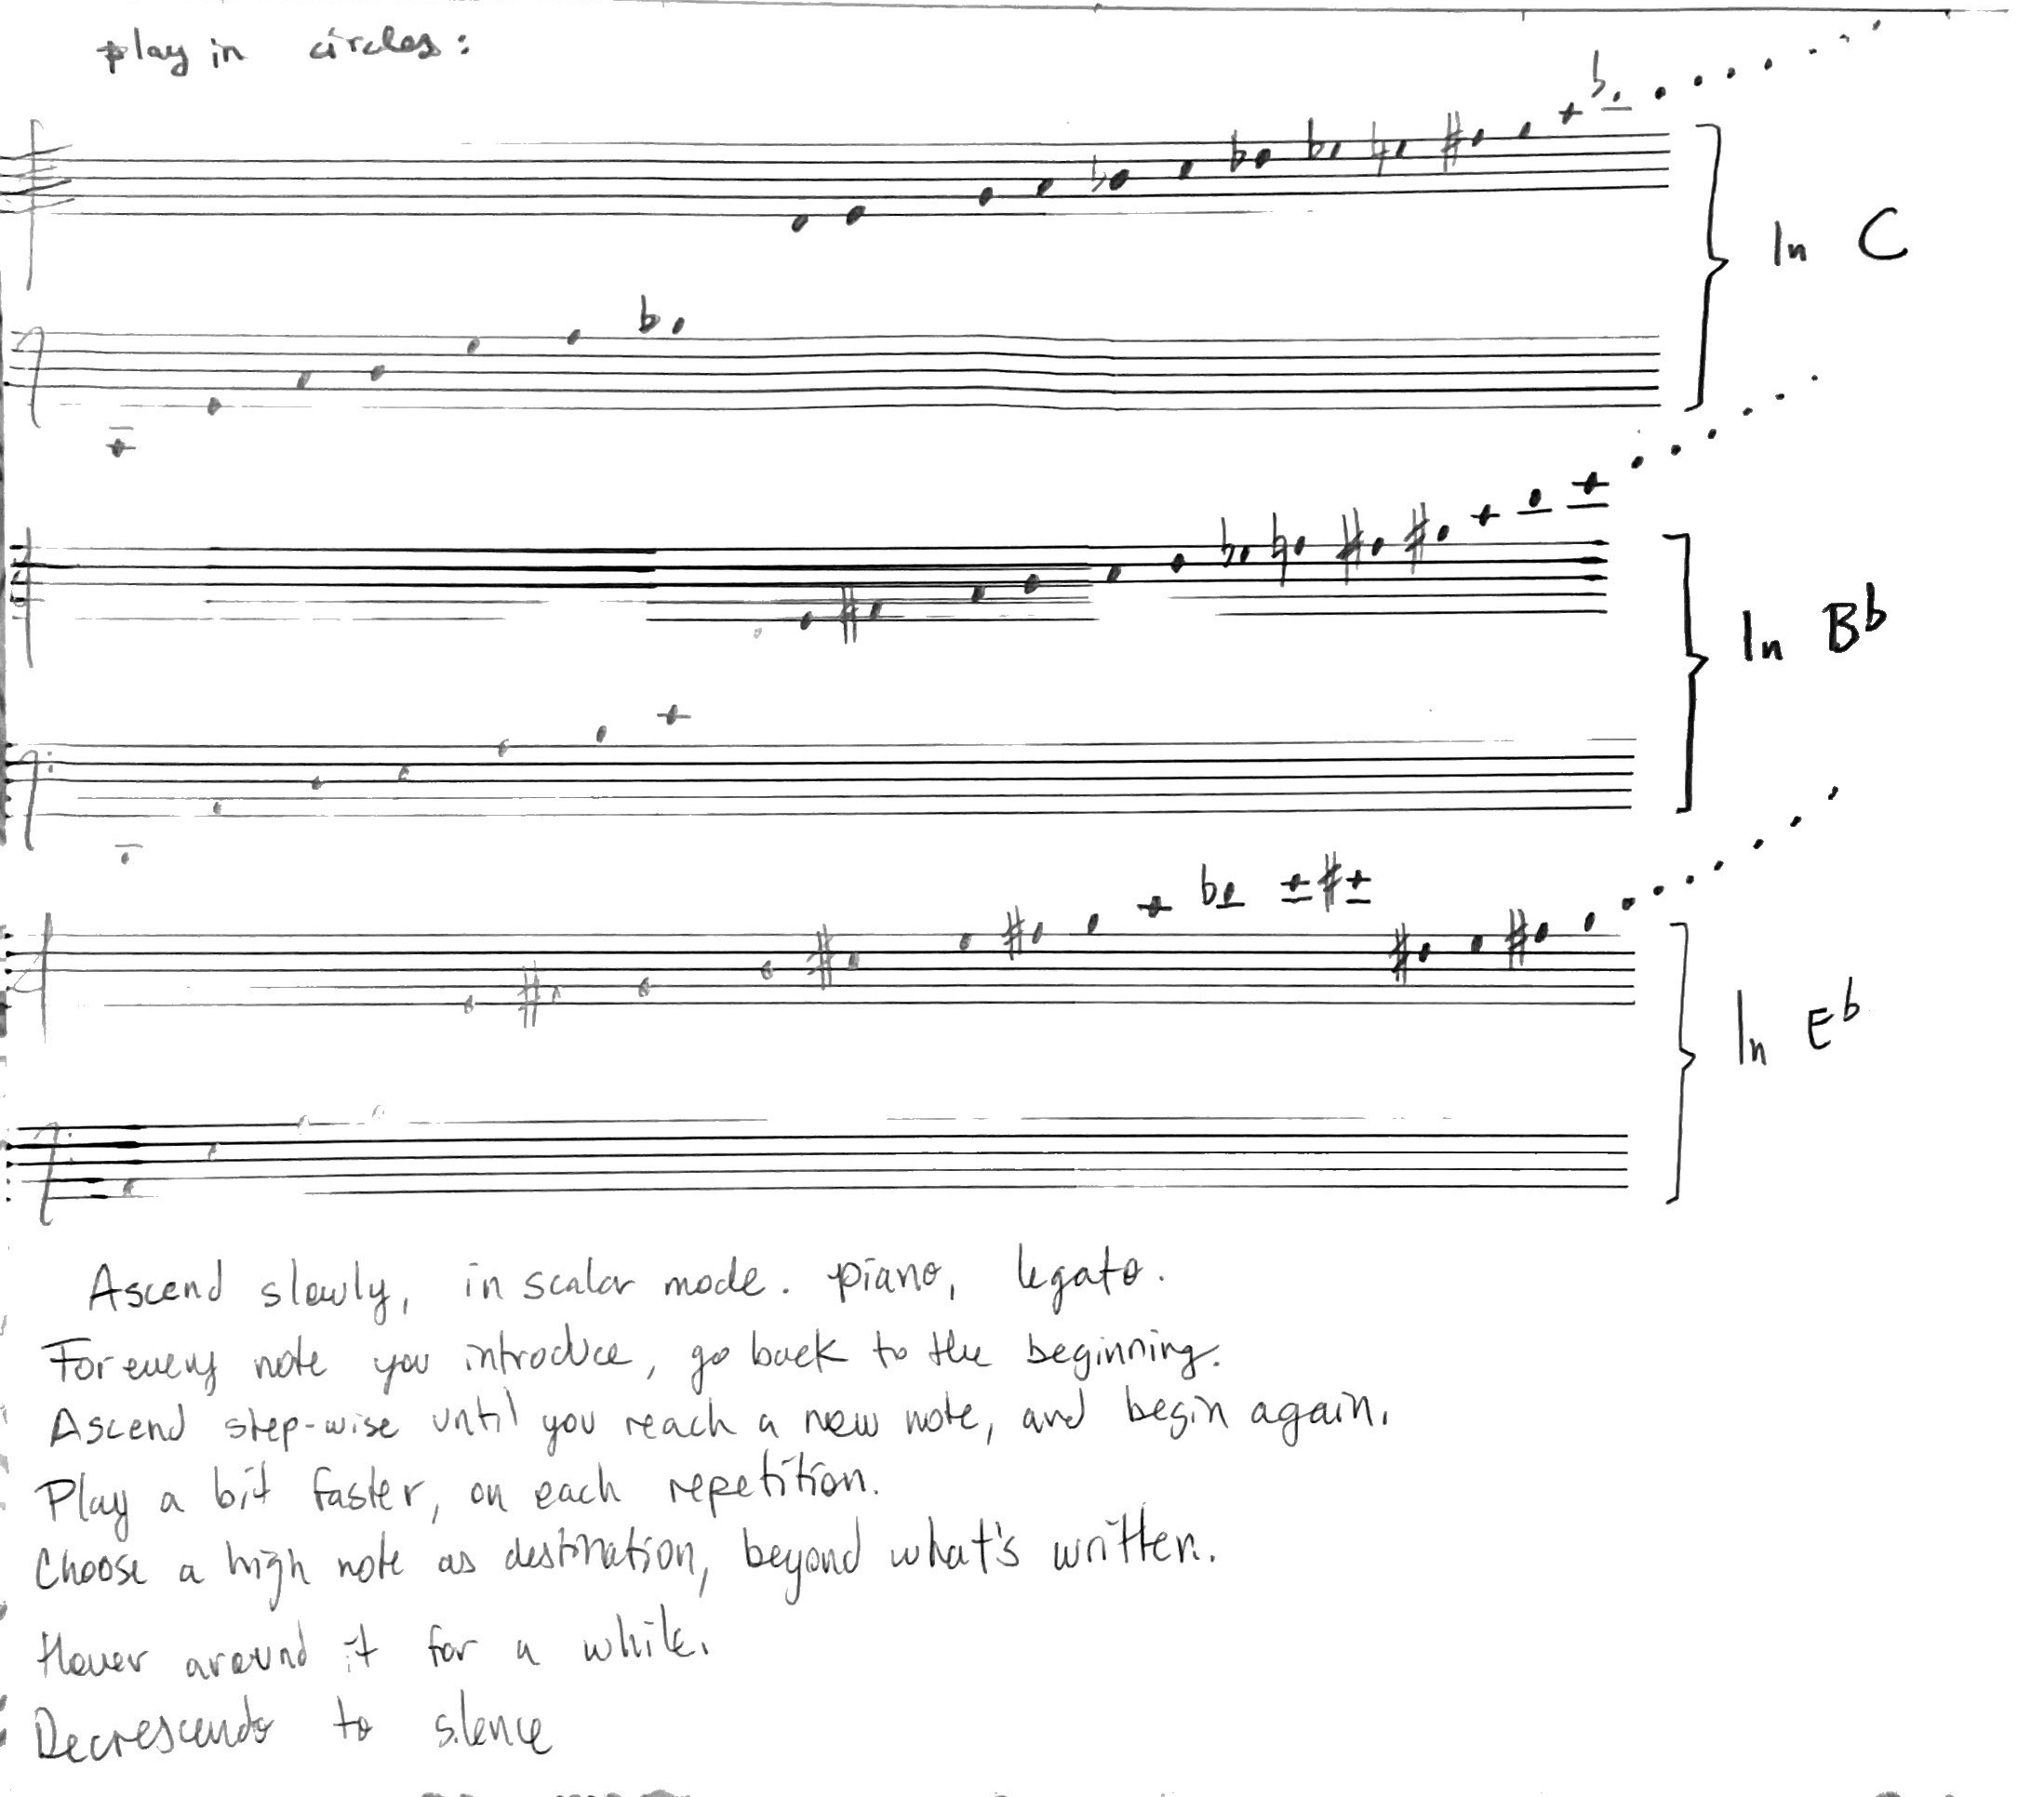 play in circles:
In C
In Bb
In Eb
Ascend slowly, in scalar mode. piano, legato.
For every note you introduce, go back to the beginning.
Ascend step-wise until you reach a new note, and begin again.
Play a bit faster, on each repetition.
Choose a high note as destination, beyond what's written.
Hover around it for a while.
Decrescendo to silence